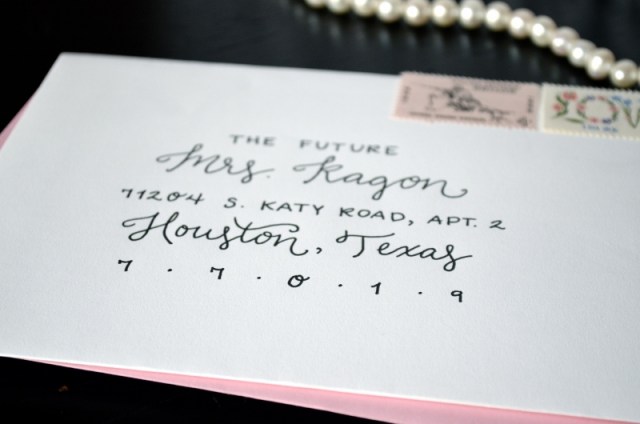 THE FUTURE
Mrs. Kagon
71204 S. KATY ROAD, APT. 2
Houston, Texas
7 . 7 . 0 . 1 . 9
LOV